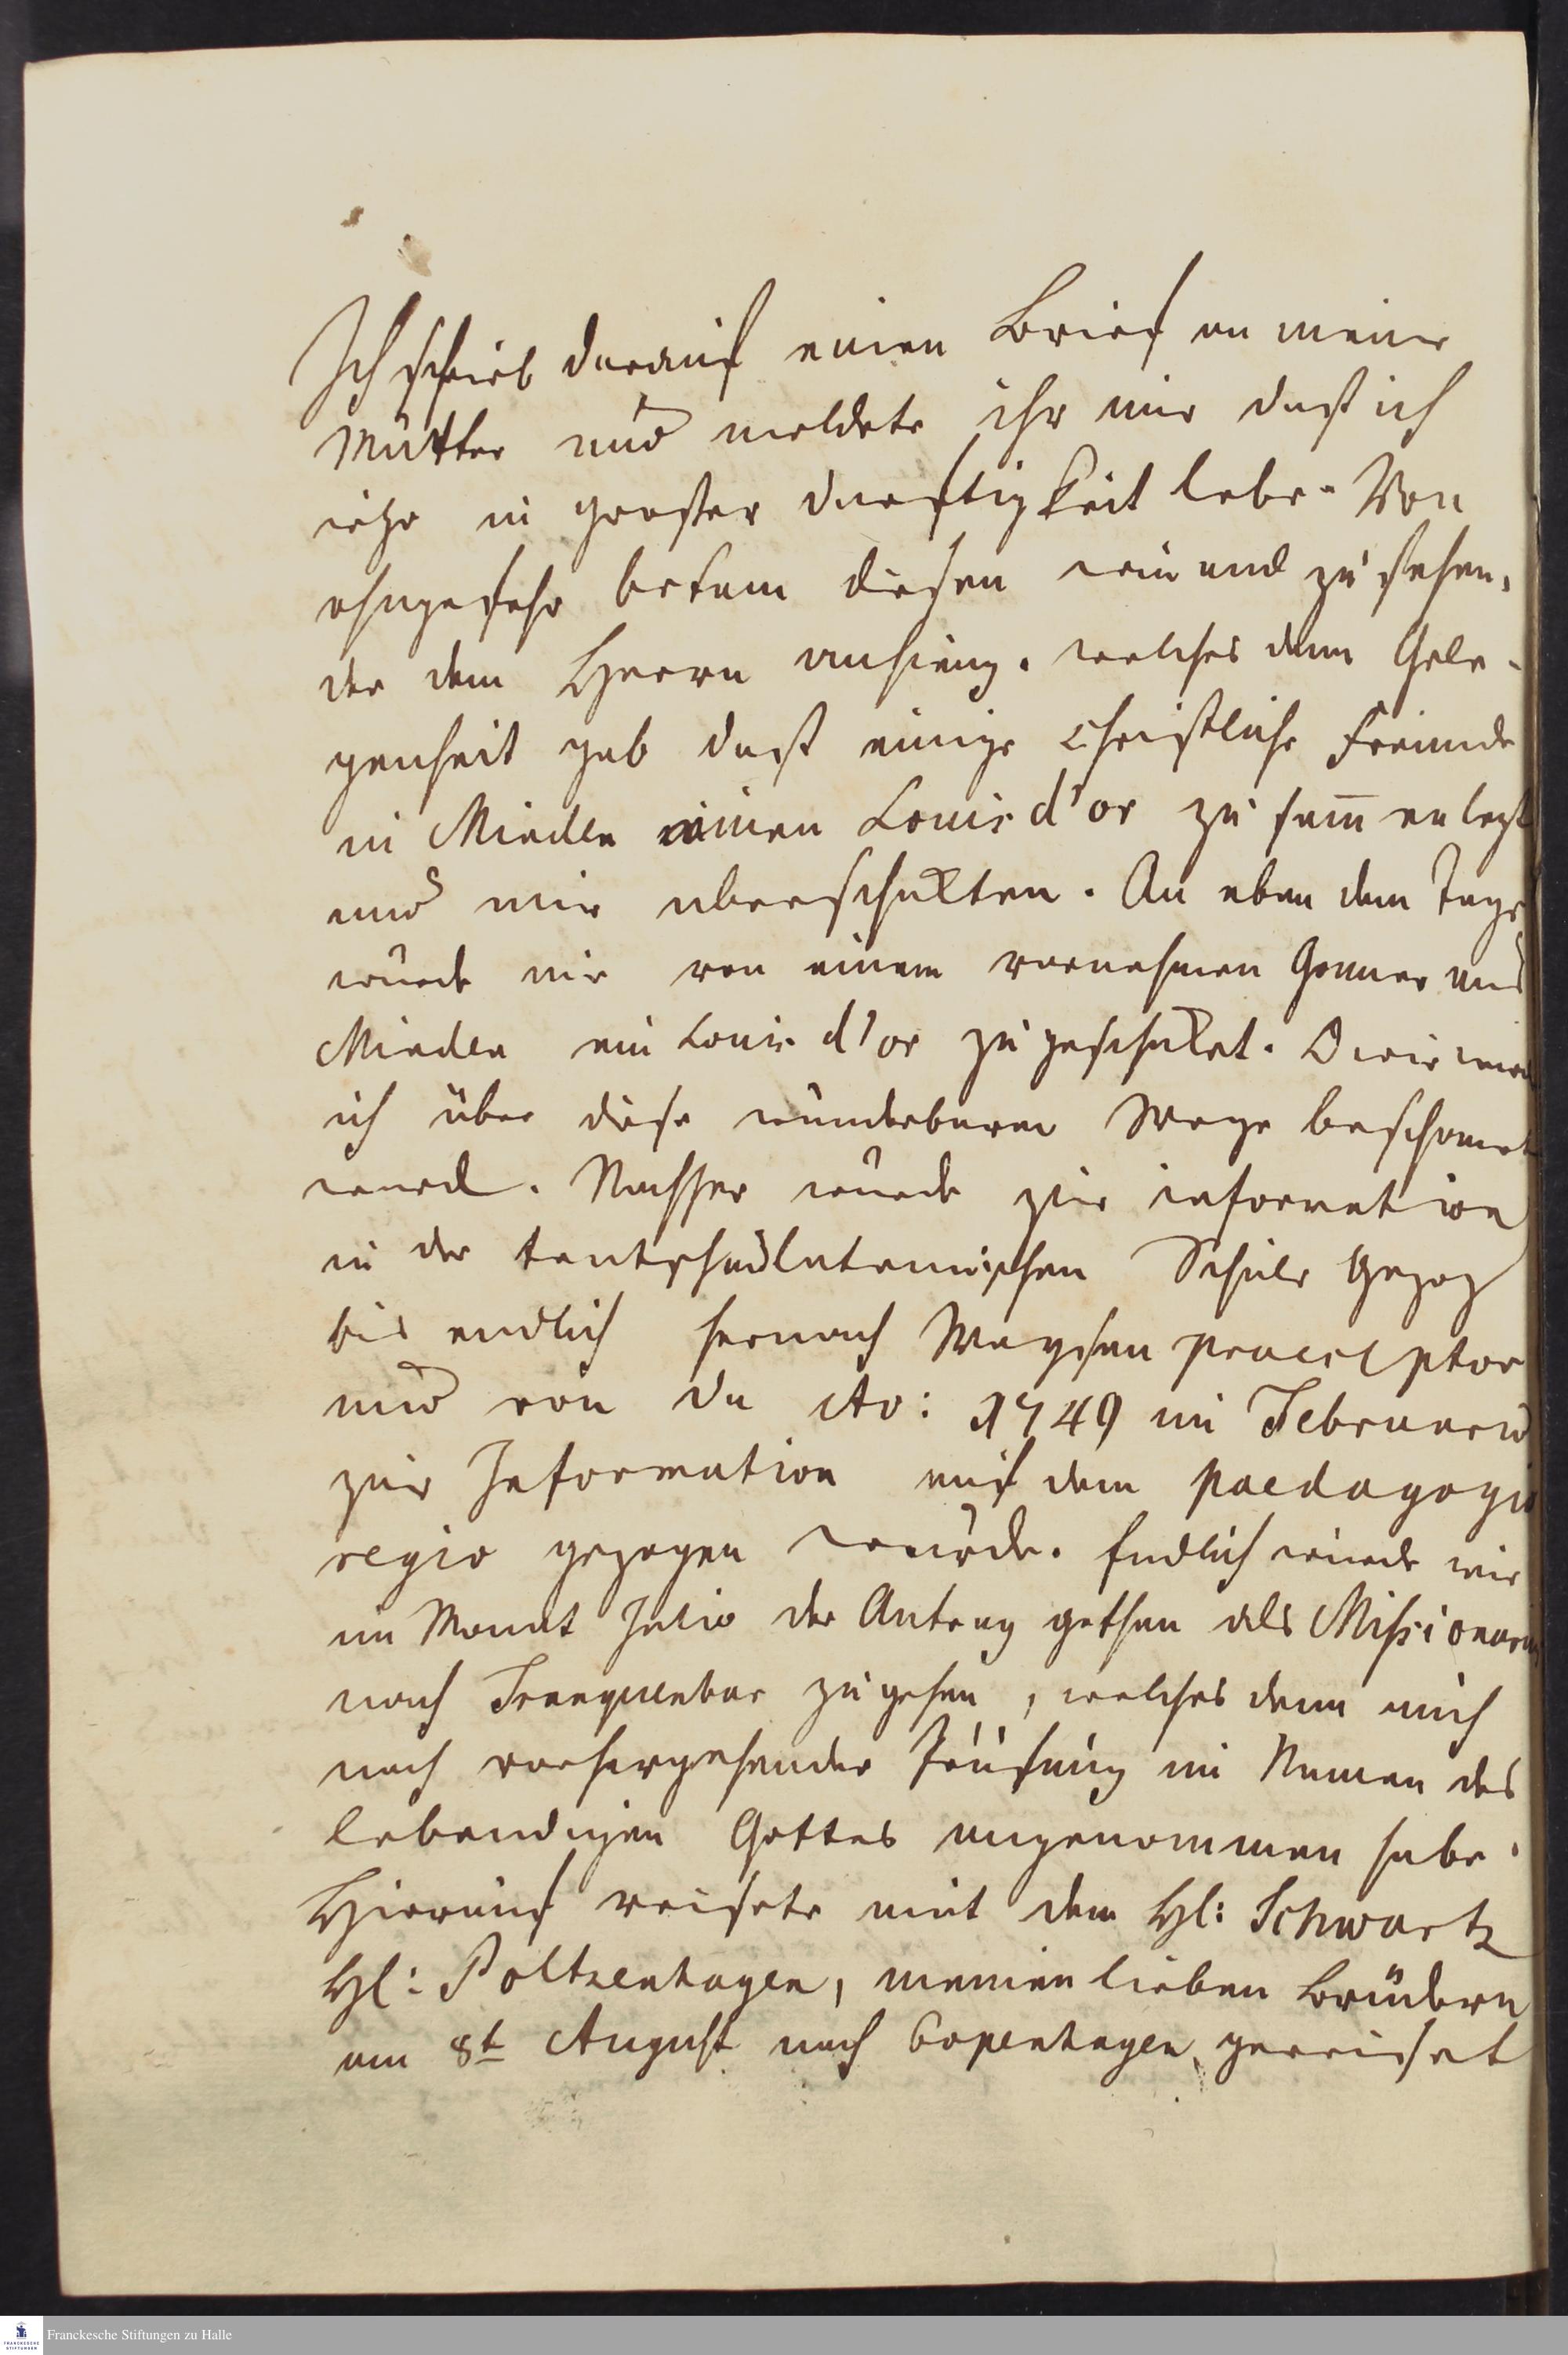 Ich schrieb darauf einen Brief an meine
Mutter und meldete ihr nur daß ich
itzo in großer durftigkeit lebe. Von
ohngefehr bekam diesen jemand zu sehen,
der dem Herrn anhieng. welches denn Gele-
genheit gab daß einige Christliche Freunde
in Minden einen Louis d'or zusam̅en legt
und mir uberschickten. An eben dem Tage
wurde mir von einem vornehmen Gonner aus
Minden ein Louis d'or zugeschicket. O wie
ich über diese wunderbaren Wege beschamet
ward. Nachher wurde zur information
in der teutschen lateinischen Schule gezog
bis endlich hernach Waysen praeceptor
und von da Ao: 1749 im Februario
zur Information auf dem paedagogio
regio gezogen wurde. Endlich wurde mir
im Monat Julio der Antrag gethan als Missionarius
nach Tranquenbar zu gehen, welches denn auch
nach vorhergehender Prüfung im Namen des
lebendigen Gottes angenommen habe.
Hierauf reisete mit dem HE: Schwartz
HE: Poltzenhagen, meinen lieben Brüdern
am 8t August nach Copenhagen gereiset
Franckesche Stiftungen zu Halle